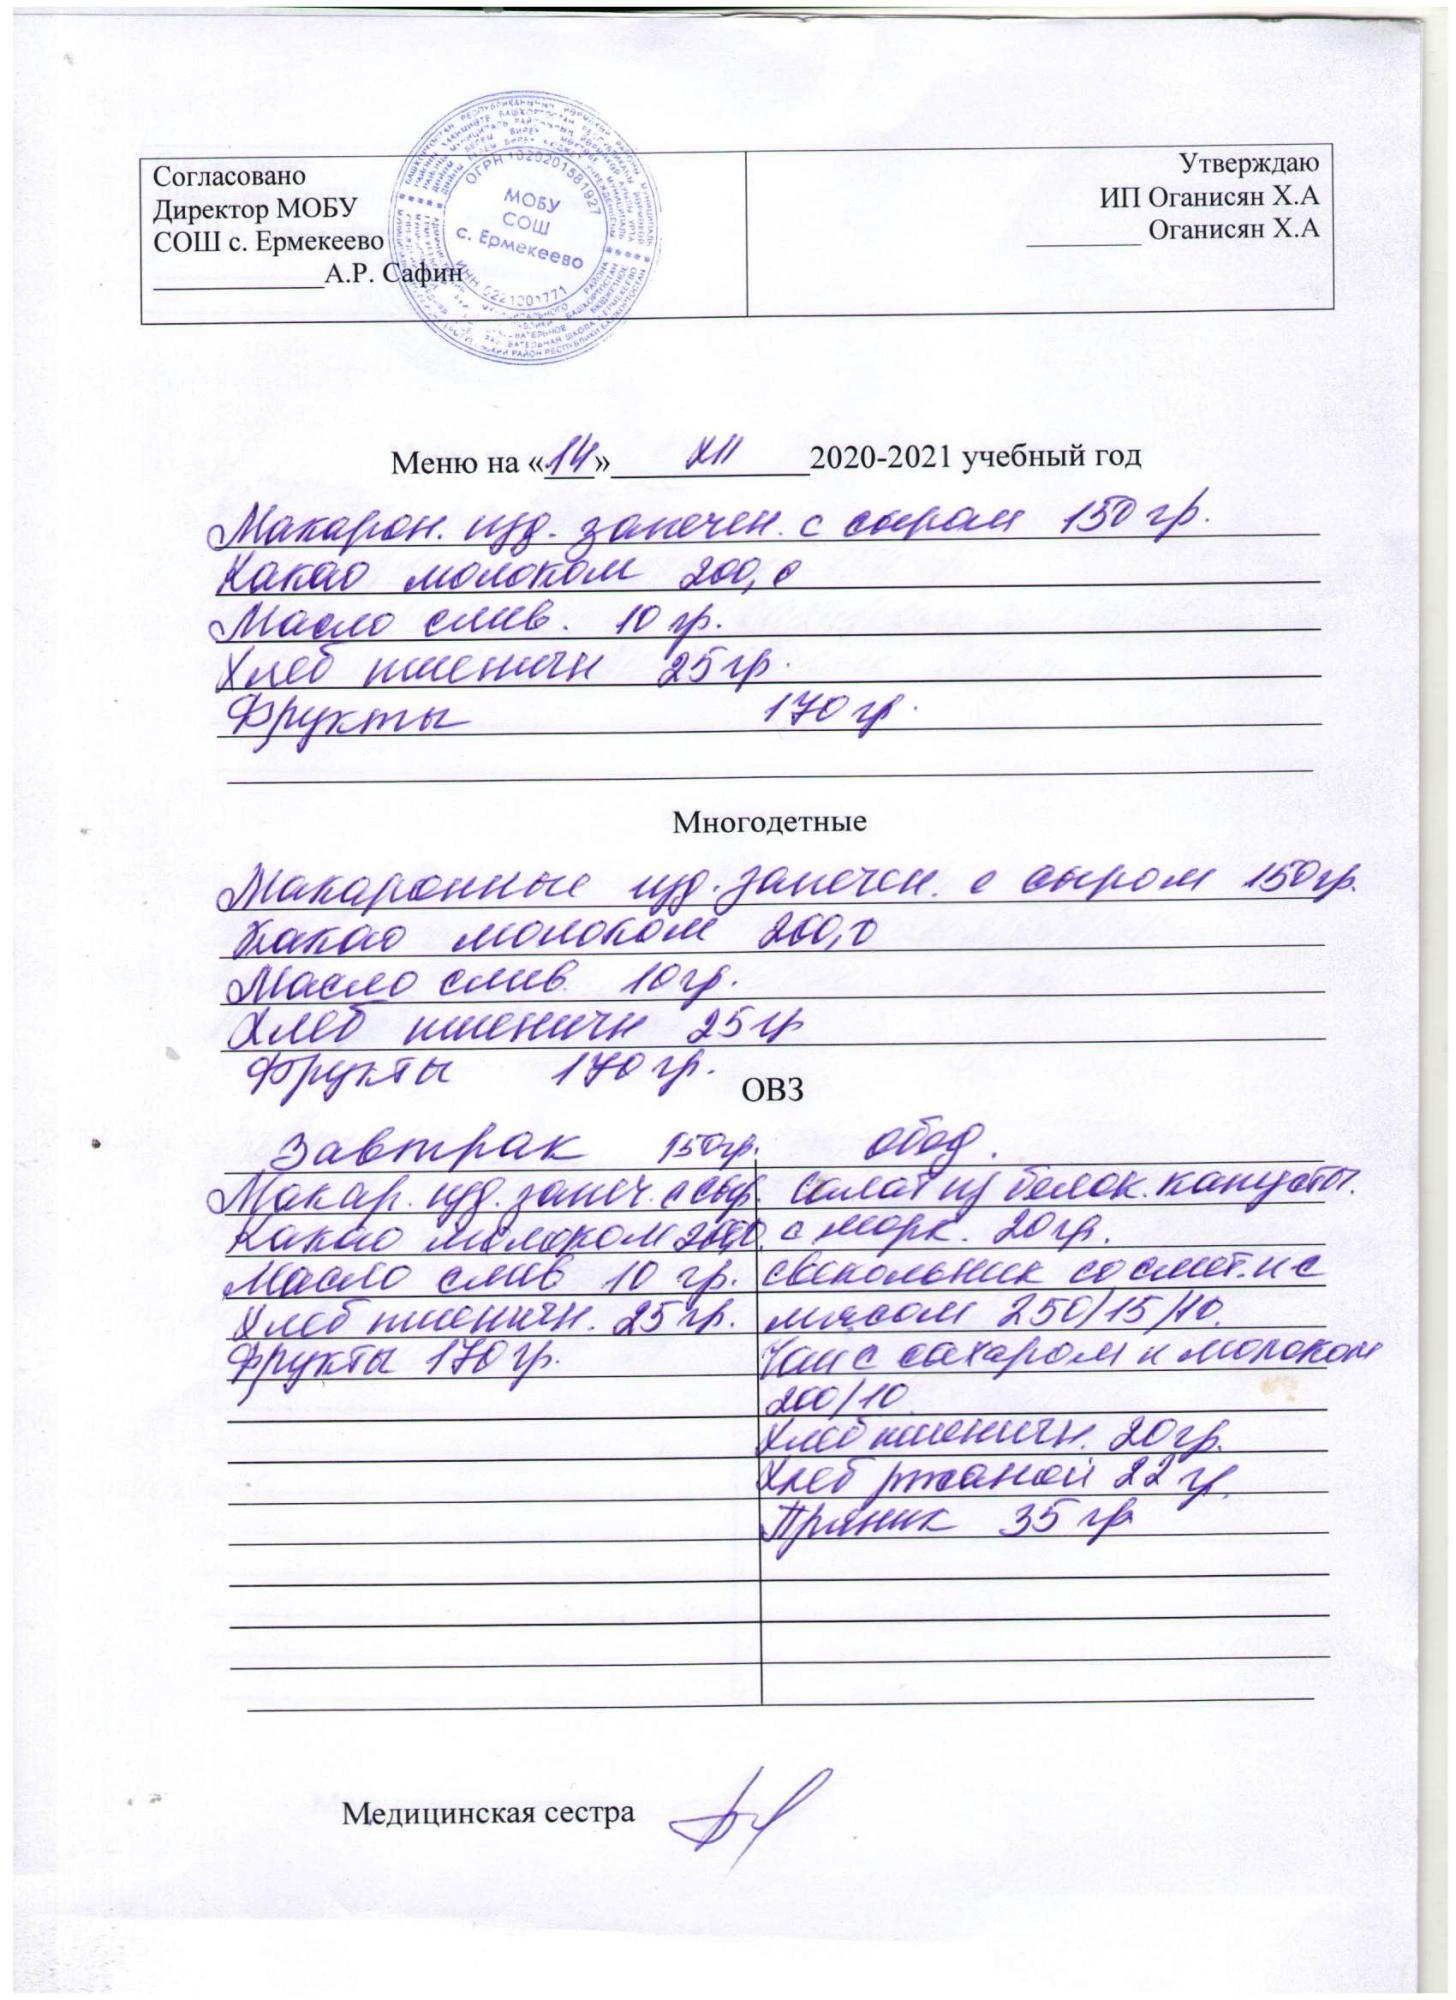 Согласовано
Директор МОБУ
СОШ с. Ермекеево
____________А.Р. Сафин
ОГРН 1020201581927
МОБУ
СОШ
с. Ермекеево
ИНН 0221001771
Утверждаю
ИП Оганисян Х.А
________ Оганисян Х.А
Меню на «14» XII 2020-2021 учебный год
Макарон. изд. запечен. с сыром 150 гр.
Какао молоком 200,0
Масло слив. 10 гр.
Хлеб пшеничн 25 гр.
Фрукты 170 гр.
Многодетные
Макаронные изд. запечен. с сыром 150 гр.
Какао молоком 200,0
Масло слив. 10 гр.
Хлеб пшеничн 25 гр
Фрукты 170 гр.
ОВЗ
Завтрак 150 гр.
Макар. изд. запеч. с сыр.
Какао молоком 200,0.
Масло слив 10 гр.
Хлеб пшеничн. 25 гр.
Фрукты 170 гр.
обед.
Салат из белок. капусты.
с морк. 20 гр.
свекольник со смет. и с
мясом 250/15/10.
Чай с сахаром и молоком
200/10
Хлеб пшеничн. 20 гр.
Хлеб ржаной 22 гр.
Пряник 35 гр
Медицинская сестра